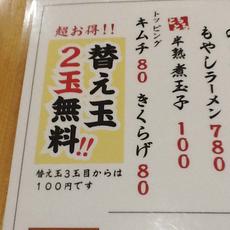 もやしラーメン780
半熟煮玉子100
トッピング
キムチ80 きくらげ80
超お得!!
替え玉
2玉無料!!
替え玉3玉目からは
100円です